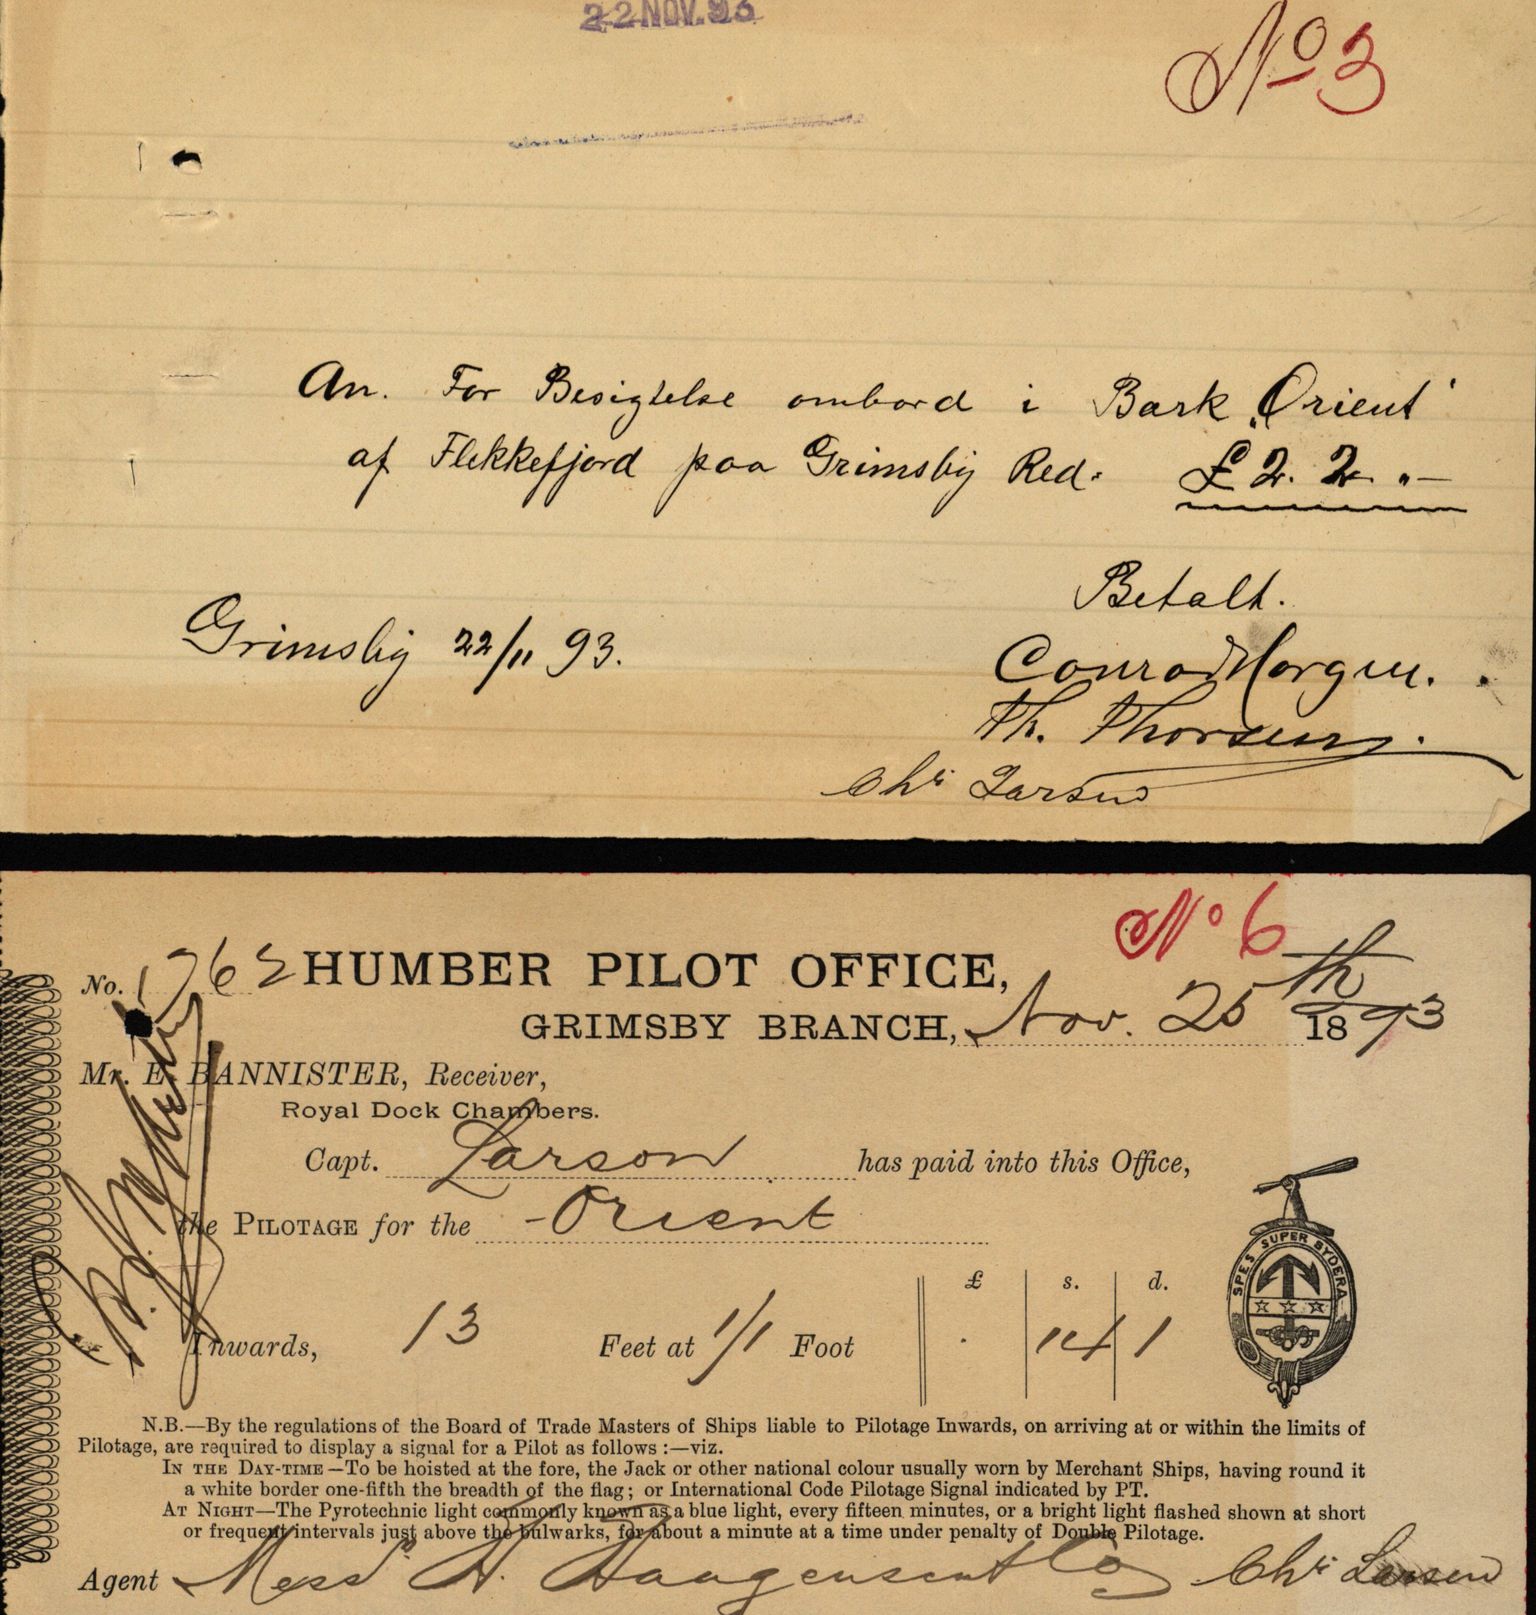 22 NOV. 93
No 3
An. For Besigtelse ombord i Bark „Orient"
af Flekkefjord paa Grimsby Red. £ 2. 2. "–
Betalt.
Grimsby 22/11 93.
Conrad Morgen.
Th. Thorsen.
Chr Larsen
No 6
No. 1762 HUMBER PILOT OFFICE,
GRIMSBY BRANCH, Nov. 25th 1893
Mr. E. BANNISTER, Receiver,
Royal Dock Chambers.
Capt. Larson has paid into this Office,
the PILOTAGE for the Orient
£ s. d.
Inwards, 13 Feet at 1/1 Foot . 14 1
SPES SUPER SYDERA
N.B.—By the regulations of the Board of Trade Masters of Ships liable to Pilotage Inwards, on arriving at or within the limits of
Pilotage, are required to display a signal for a Pilot as follows :—viz.
IN THE DAY-TIME—To be hoisted at the fore, the Jack or other national colour usually worn by Merchant Ships, having round it
a white border one-fifth the breadth of the flag; or International Code Pilotage Signal indicated by PT.
AT NIGHT—The Pyrotechnic light commonly known as a blue light, every fifteen minutes, or a bright light flashed shown at short
or frequent intervals just above the bulwarks, for about a minute at a time under penalty of Double Pilotage.
Agent Messrs H. Haagensen & Co Chr Larsen